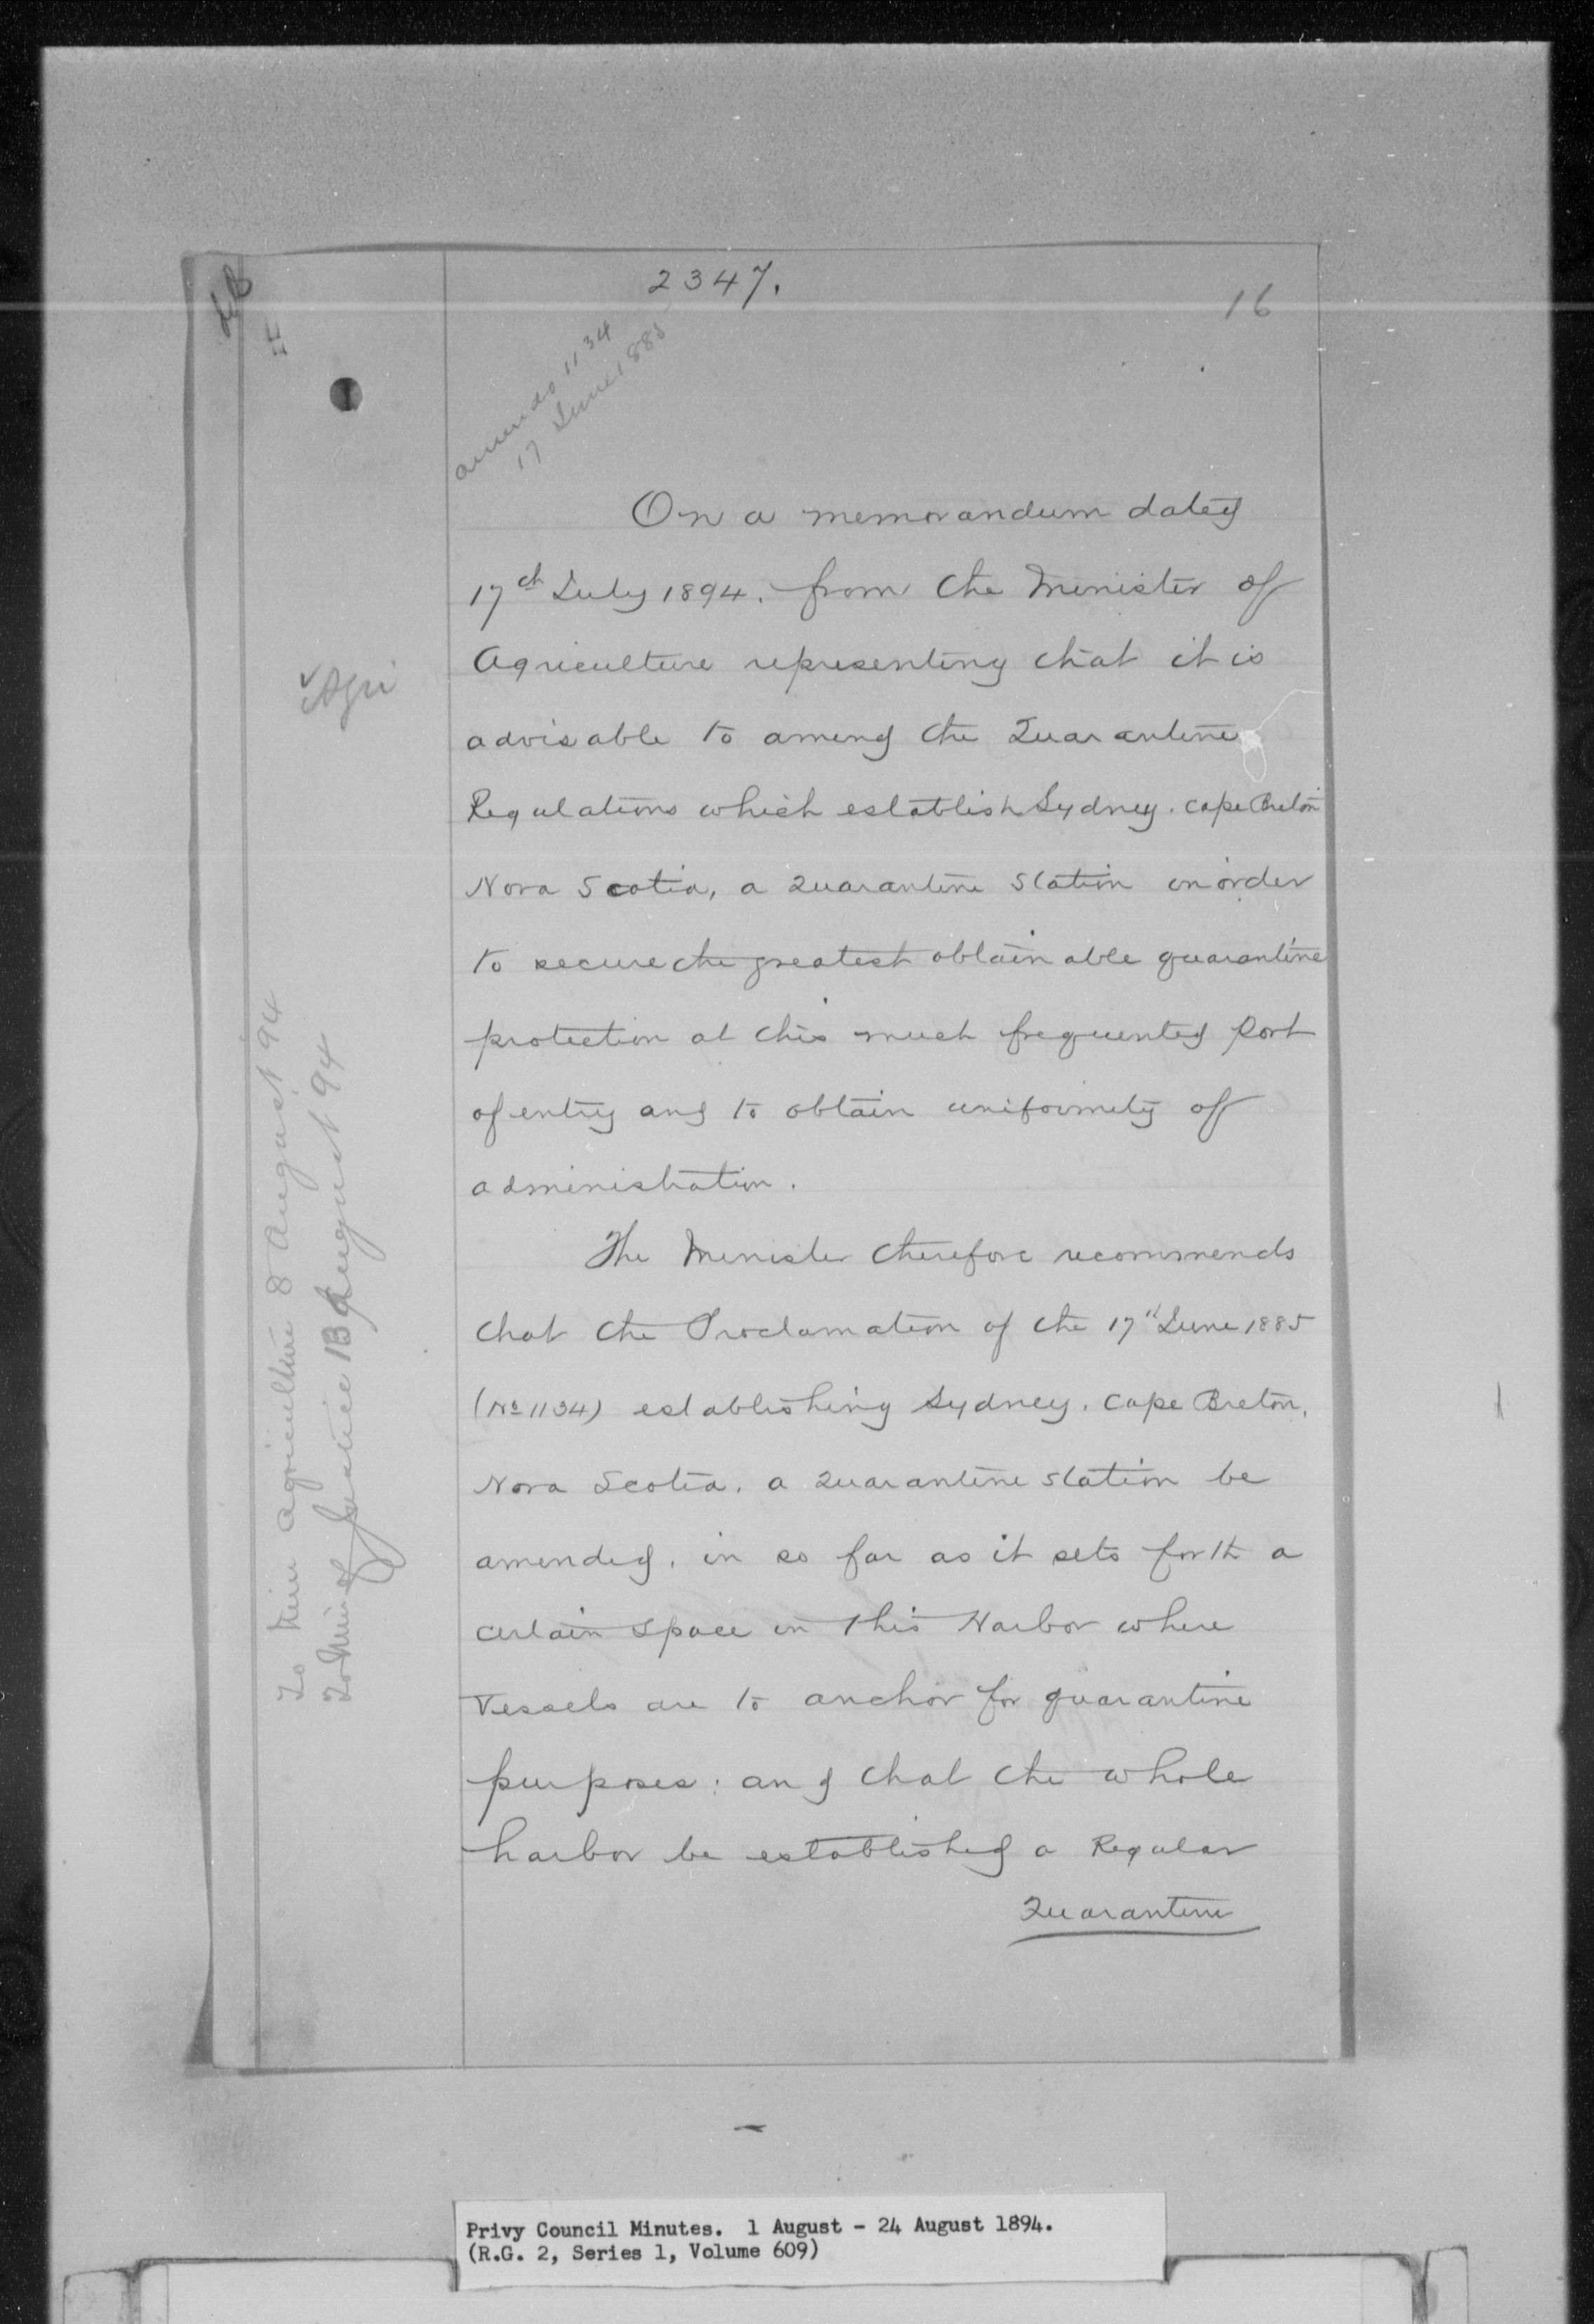 2347.
16
amends 1134
17 June 1885
On a memorandum dated
17th July 1894. from the Minister of
Agriculture representing that it is
advisable to amend the Quarantine
Regulations which establish Sydney. Cape Breton
Nova Scotia, a Quarantine Station in order
to secure the greatest obtainable quarantine
protection at this much frequented Port
of entry and to obtain uniformity of
administration.
The Minister therefore recommends
that the Proclamation of the 17" June 1885
(No 1134) establishing Sydney. Cape Breton,
Nova Scotia. a Quarantine Station be
amended. in so far as it sets forth a
certain space in this Harbor where
Vessels are to anchor for quarantine
purposes: and that the whole
harbor be established a Regular
Quarantine
Agri
To Min Agriculture 8 August 94
To Min of Justice 13 August 94
Privy Council Minutes. 1 August - 24 August 1894.
(R.G. 2, Series 1, Volume 609)